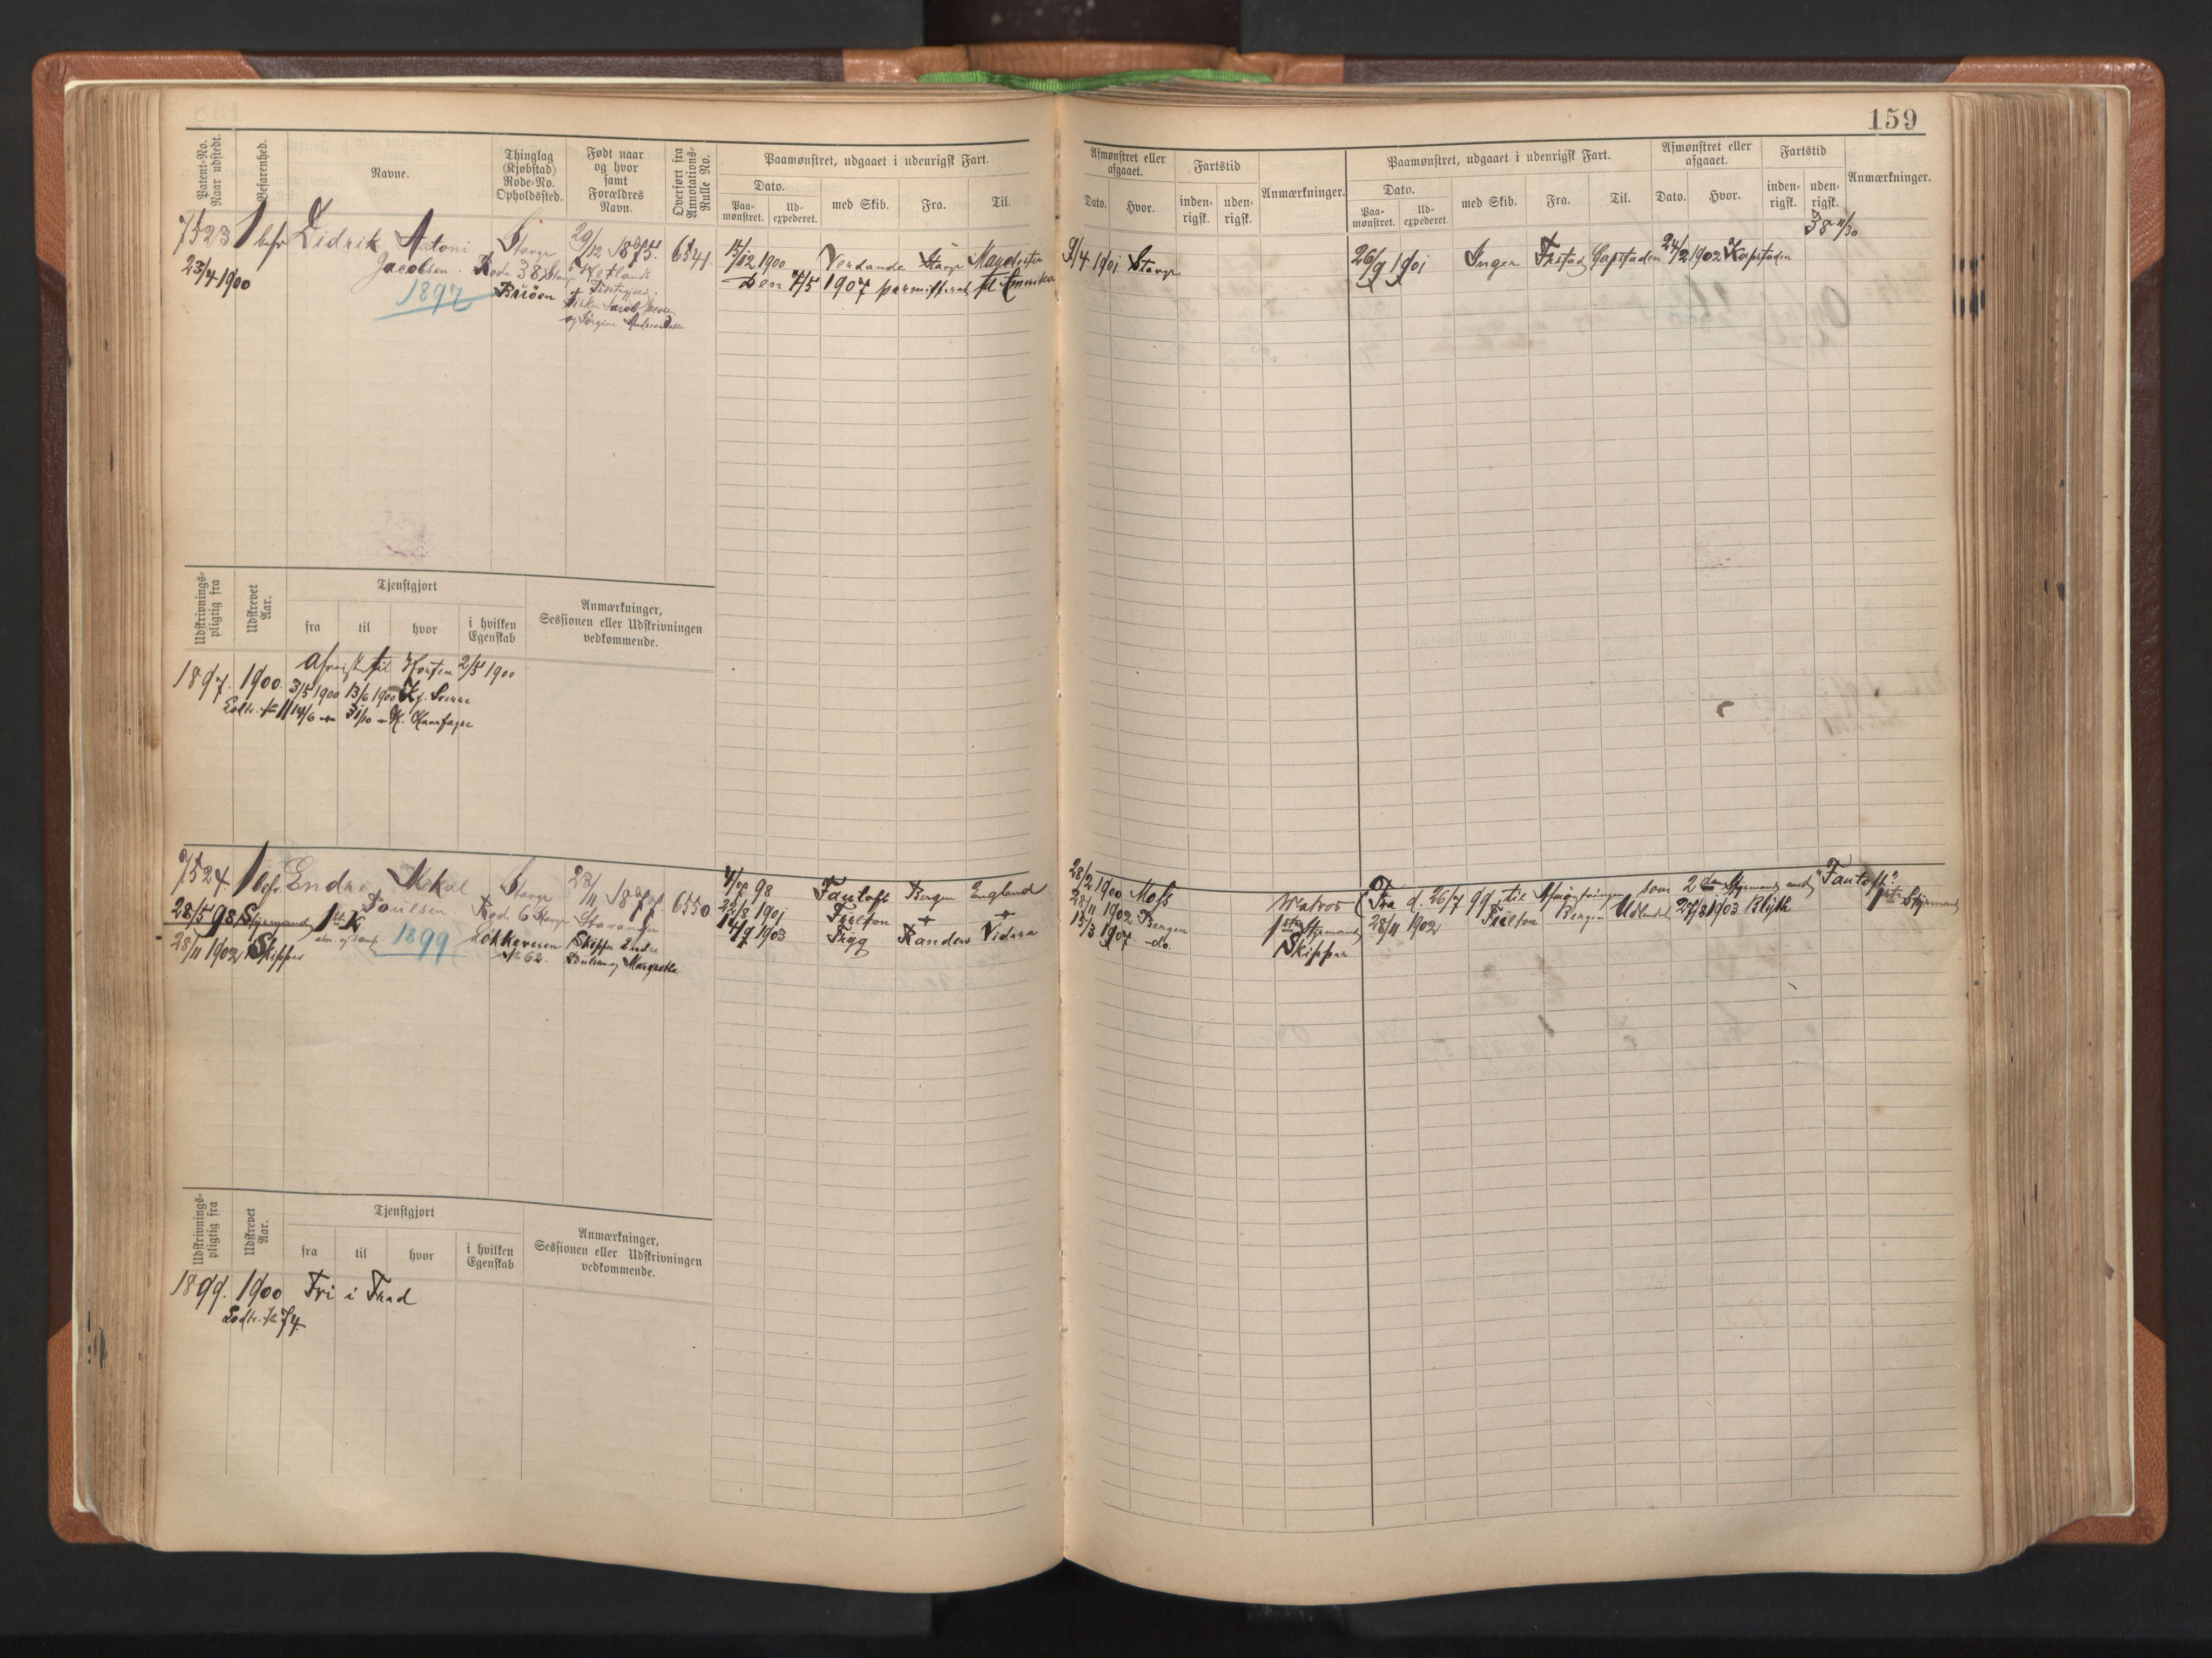 159
Patent-No. Naar udstedt.
Befarenhed.
Navne.
Thinglag (Kjøbstad) Rode-No. Opholdssted.
Født naar og hvor samt Forældres Navn.
Overført fra Annotations-Rulle No.
Paamønstret, udgaaet i udenrigsk Fart.
Dato.
Paa-mønstret.
Ud-expederet.
med Skib.
Fra.
Til.
Afmønstret eller afgaaet.
Dato.
Hvor.
Fartstid
inden-rigsk.
uden-rigsk.
Anmærkninger.
Paamønstret, udgaaet i udenrigsk Fart.
Dato.
Paa-mønstret.
Ud-expederet.
med Skib.
Fra.
Til.
Afmønstret eller afgaaet.
Dato.
Hvor.
Fartstid
inden-rigsk.
uden-rigsk.
Anmærkninger.
38 11/30
7523 1 befr Didrik Antoni Stavgr 29/12 1875. 6541. 15/12 1900 Verdande Stavgr 9/4 1901 Stavgr 26/9 1901 Inger Capstaden 24/2 1902 Kapstaden
23/4 1900 Jacobsen. Rode 38 Hetlands Den 4/5 1907 permitteret til Amerika
1897 Buøen
Jacob
og
Udskrivnings-pligtig fra
Udskrevet Aar.
Tjenstgjort
fra
til
hvor
i hvilken Egenskab
Anmærkninger, Sessionen eller Udskrivningen vedkommende.
1897. 1900. til Horten 2/5 1900
3/5 1900 13/6 1900
Lodtr. No 11 14/6 31/10
7524. 1 befr. Endre Mikal Stavgr 23/11 6550. 4/7 98 Fantoft Bergen England 28/2 1900 Moss Matros Fra d. 26/7 99 til Afmønstringen som 2den Styrmand med "Fantoft"
28/5 98 Styrmand 1ste K Poulsen. Rode 6 Stavgr Stavanger 22/8 1901 Fulton + + 28/11 1902 Bergen 1ste Styrmand 28/11 1902 Fulton Bergen Udlandet 27/8 1903 Blyth 1ste Styrmand
28/11 1902 Skipper 1899 Løkkeveien Skipper Endre 14/9 1903 Rigg Randers Vidsra 13/3 1907 do. Skipper
No 62. Poulsen og Margrethe
Udskrivnings-pligtig fra
Udskrevet Aar.
Tjenstgjort
fra
til
hvor
i hvilken Egenskab
Anmærkninger, Sessionen eller Udskrivningen vedkommende.
1899. 1900 Fri i Fred
Lodtr. No 74.